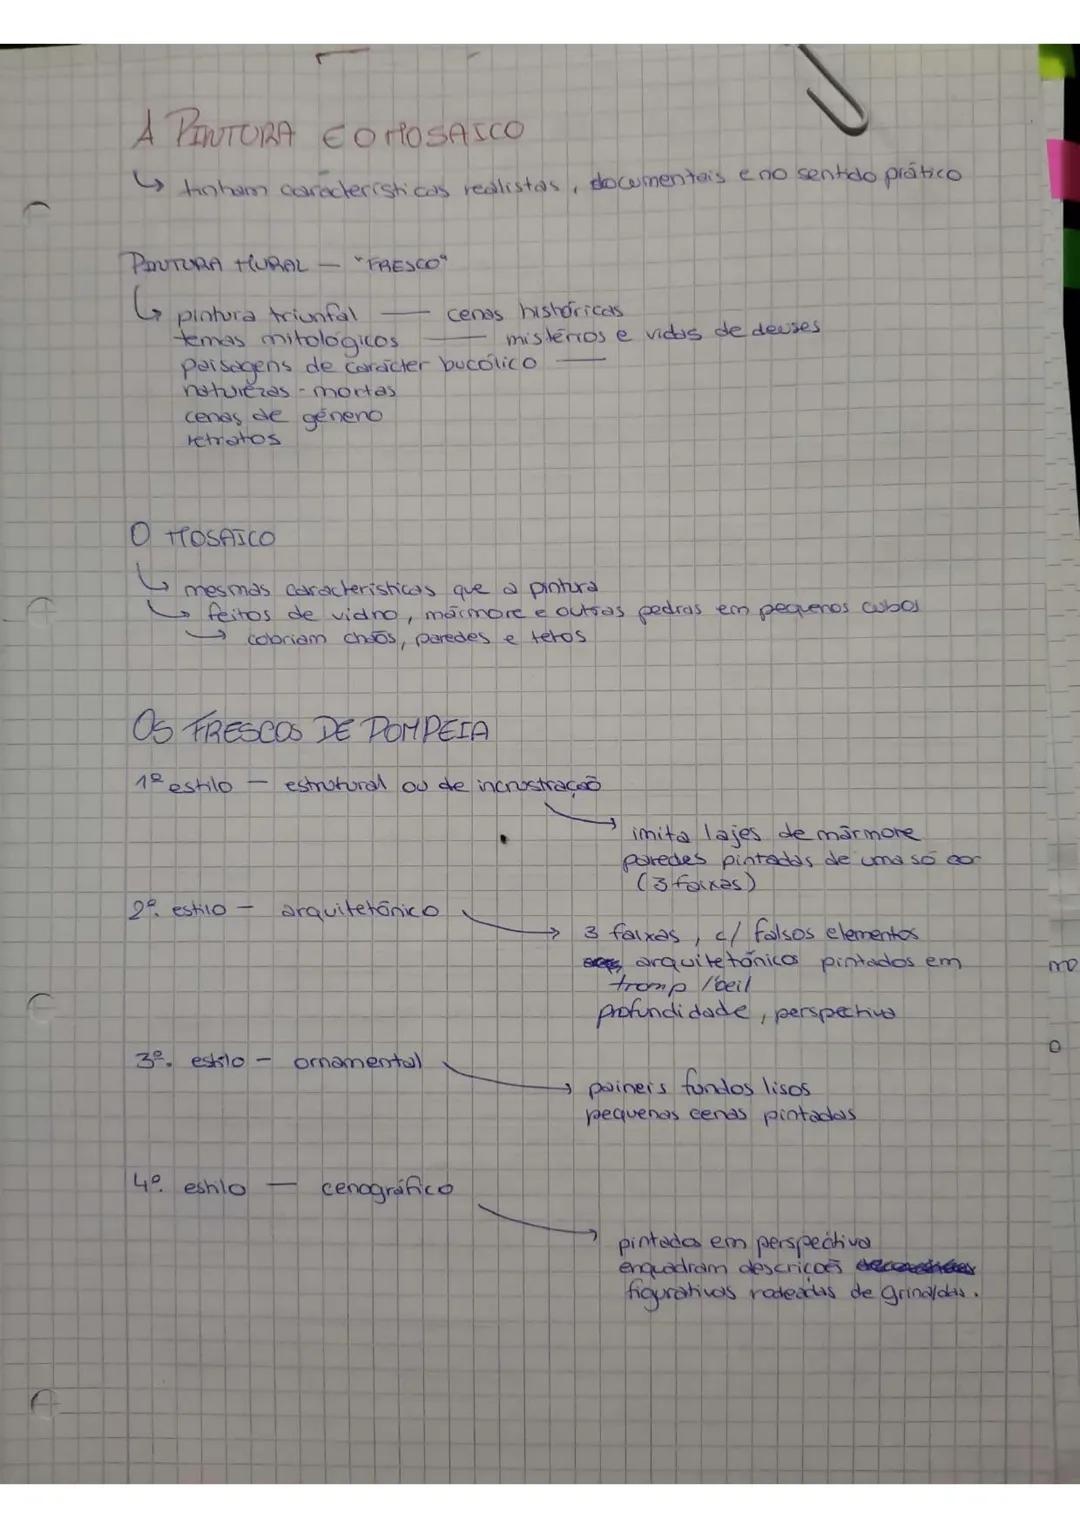 A PINTURA E O MOSAICO
↳ tinham características realistas, documentais e no sentido prático
PINTURA MURAL — "FRESCO"
↳ pintura triunfal — cenas históricas
temas mitológicos — mistérios e vidas de deuses
paisagens de carácter bucólico —
naturezas-mortas
cenas de género
retratos
O MOSAICO
↳ mesmas características que a pintura
↳ feitos de vidro, mármore e outras pedras em pequenos cubos
→ cobriam chãos, paredes e tetos
OS FRESCOS DE POMPEIA
1º estilo — estrutural ou de incrustração
→ imita lajes de mármore
paredes pintadas de uma só cor
(3 faixas)
2º. estilo — arquitetónico
→ 3 faixas, c/ falsos elementos
arquitetónicos pintados em
tromp l'oeil
profundidade, perspectiva
mo
o
3º. estilo — ornamental
→ paineis fundos lisos
pequenas cenas pintadas
4º. estilo — cenográfico
→ pintados em perspectiva
enquadram descrições
figurativas rodeadas de grinaldas.